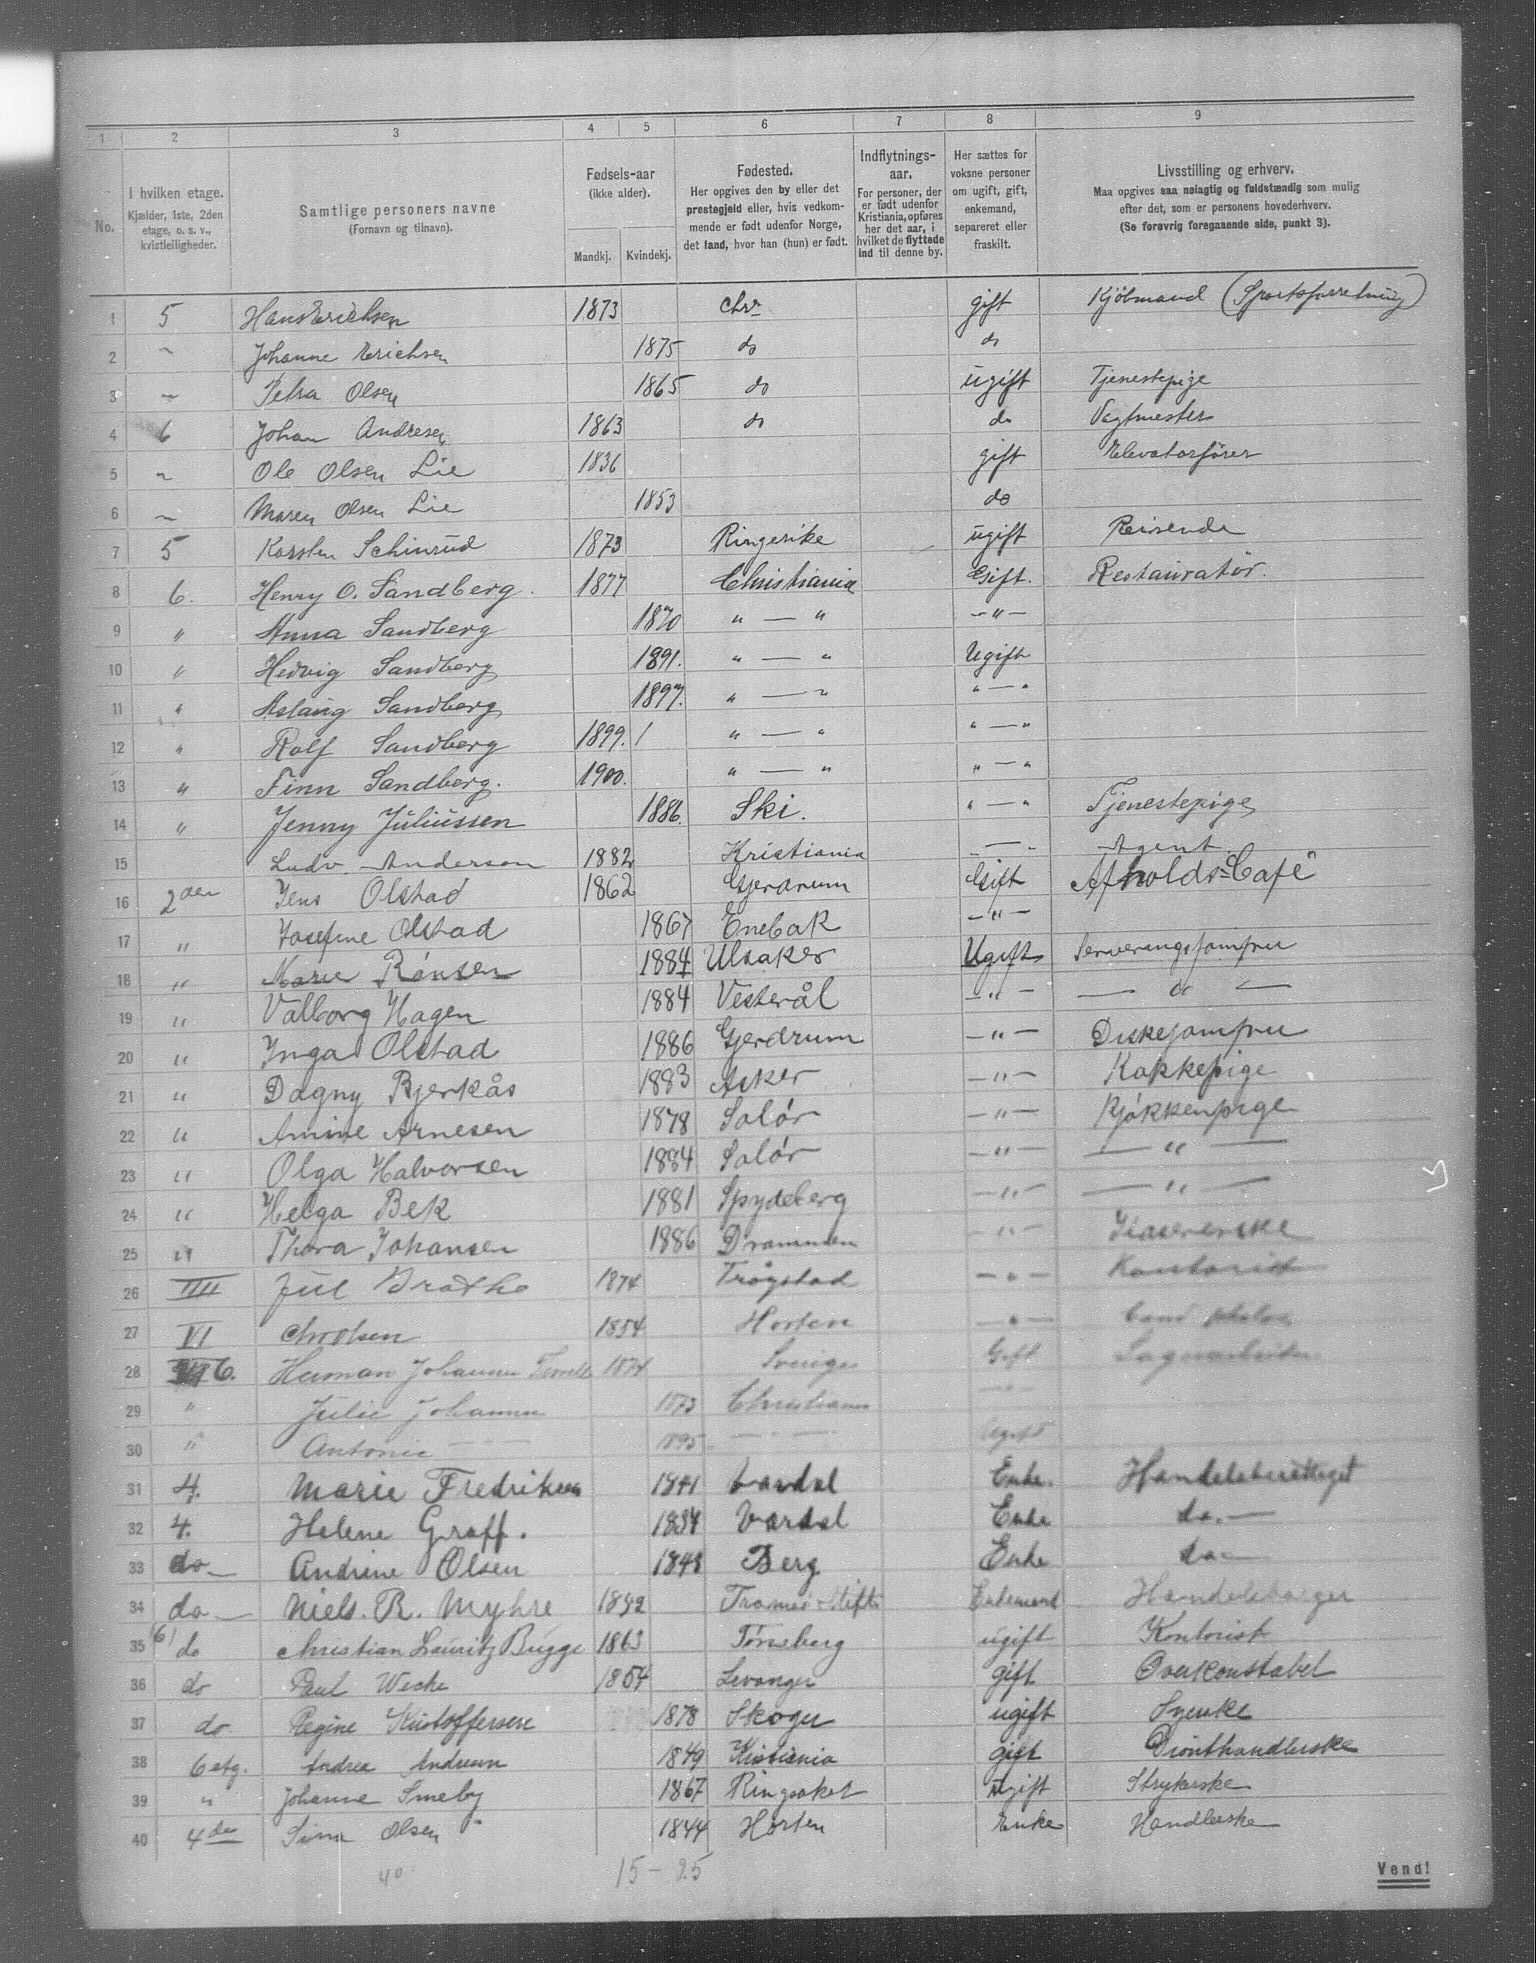 1 2 3 4 5 6 7 8 9
No.
I hvilken etage.
Kjælder, 1ste, 2den
etage, o. s. v.,
kvistleiligheder.
Samtlige personers navne
(Fornavn og tilnavn).
Fødsels-aar
(ikke alder).
Mandkj. Kvindekj.
Fødested.
Her opgives den by eller det
prestegjeld eller, hvis vedkom-
mende er født udenfor Norge,
det land, hvor han (hun) er født.
Indflytnings-
aar.
For personer, der
er født udenfor
Kristiania, opføres
her det aar, i
hvilket de flyttede
ind til denne by.
Her sættes for
voksne personer
om ugift, gift,
enkemand,
separeret eller
fraskilt.
Livsstilling og erhverv.
Maa opgives saa nøiagtig og fuldstændig som mulig
efter det, som er personens hovederhverv.
(Se forøvrig foregaaende side, punkt 3).
1 5 Hans Erichsen 1873 Chra gift Kjøbmand (Sportsforretning)
2 " Johanne Erichsen 1875 do do
3 " Petra Olsen 1865 do ugift Tjenestepige
4 6 Johan Andresen 1863 do do Vagtmester
5 " Ole Olsen Lie 1836 gift Elevatorfører
6 " Maren Olsen Lie 1853 do
7 5 Karsten Schinrud 1873 Ringerike ugift Reisende
8 6. Henry O. Sandberg. 1877 Christiania Gift. Restauratør.
9 " Anna Sandberg 1870 " — " — " —
10 " Hedvig Sandberg 1891. " — " Ugift
11 " Aslaug Sandberg 1897. " — " " — "
12 " Rolf Sandberg 1899. / " — " " — "
13 " Finn Sandberg. 1900. " — " " — "
14 " Jenny Juliussen 1886. Ski. " — " Tjenestepige
15 Ludv. Anderson 1882 Kristiania " — " Agent.
16 2den Jens Olstad 1862 Gjerdrum Gift Afholds-Café
17 " Josefine Olstad 1867 Enebak — " —
18 " Marie Rønsen 1884 Ulsaker Ugift Serveringsjomfru
19 " Valborg Hagen 1884 Vesterål — " — — " —
20 " Inga Olstad 1886 Gjerdrum — " — Diskejomfru
21 " Dagny Bjerkås 1883 Asker — " — Kokkepige
22 " Amine Arnesen 1878 Solør — " — Kjøkkenpige
23 " Olga Halvorsen 1884 Solør — " — — " —
24 " Helga Bek 1881 Spydeberg — " — — " —
25 " Thora Johansen 1886 Drammen — " —
26 IIII Jul Brathe 1874 Trøgstad — " — Kontorist
27 VI Chr Olsen 1854 Horten — " — Cand.
28 6. Herman Johannes 1874 Sverige Gift
29 " Julie Johannes 1873 Christiania — " —
30 " Antonie — " — 1895 — " — Ugift
31 4. Marie Fredriksen 1841 Vardal Enke.
32 4. Helene Graff. 1834 Vardal Enke do. —
33 do — Andrine Olsen 1848 Berg Enke do —
34 do — Niels. R. Myhre 1842 Tromsø Stift Enkemand Handelsborger
35 (6) do Christian Lauritz Bugge 1863 Tønsberg ugift Kontorist
36 do Paul Wecke 1854 Levanger gift Overkonstabel
37 do Regine Kristoffersen 1878 Skoger ugift
38 6 etg. Andrea Andersen 1849 Kristiania gift
39 " Johanne Smeby 1867 Ringsaker ugift Strykerske
40 4de Sina Olsen 1844 Horten Enke Handlerske
40 15 – 25
Vend!